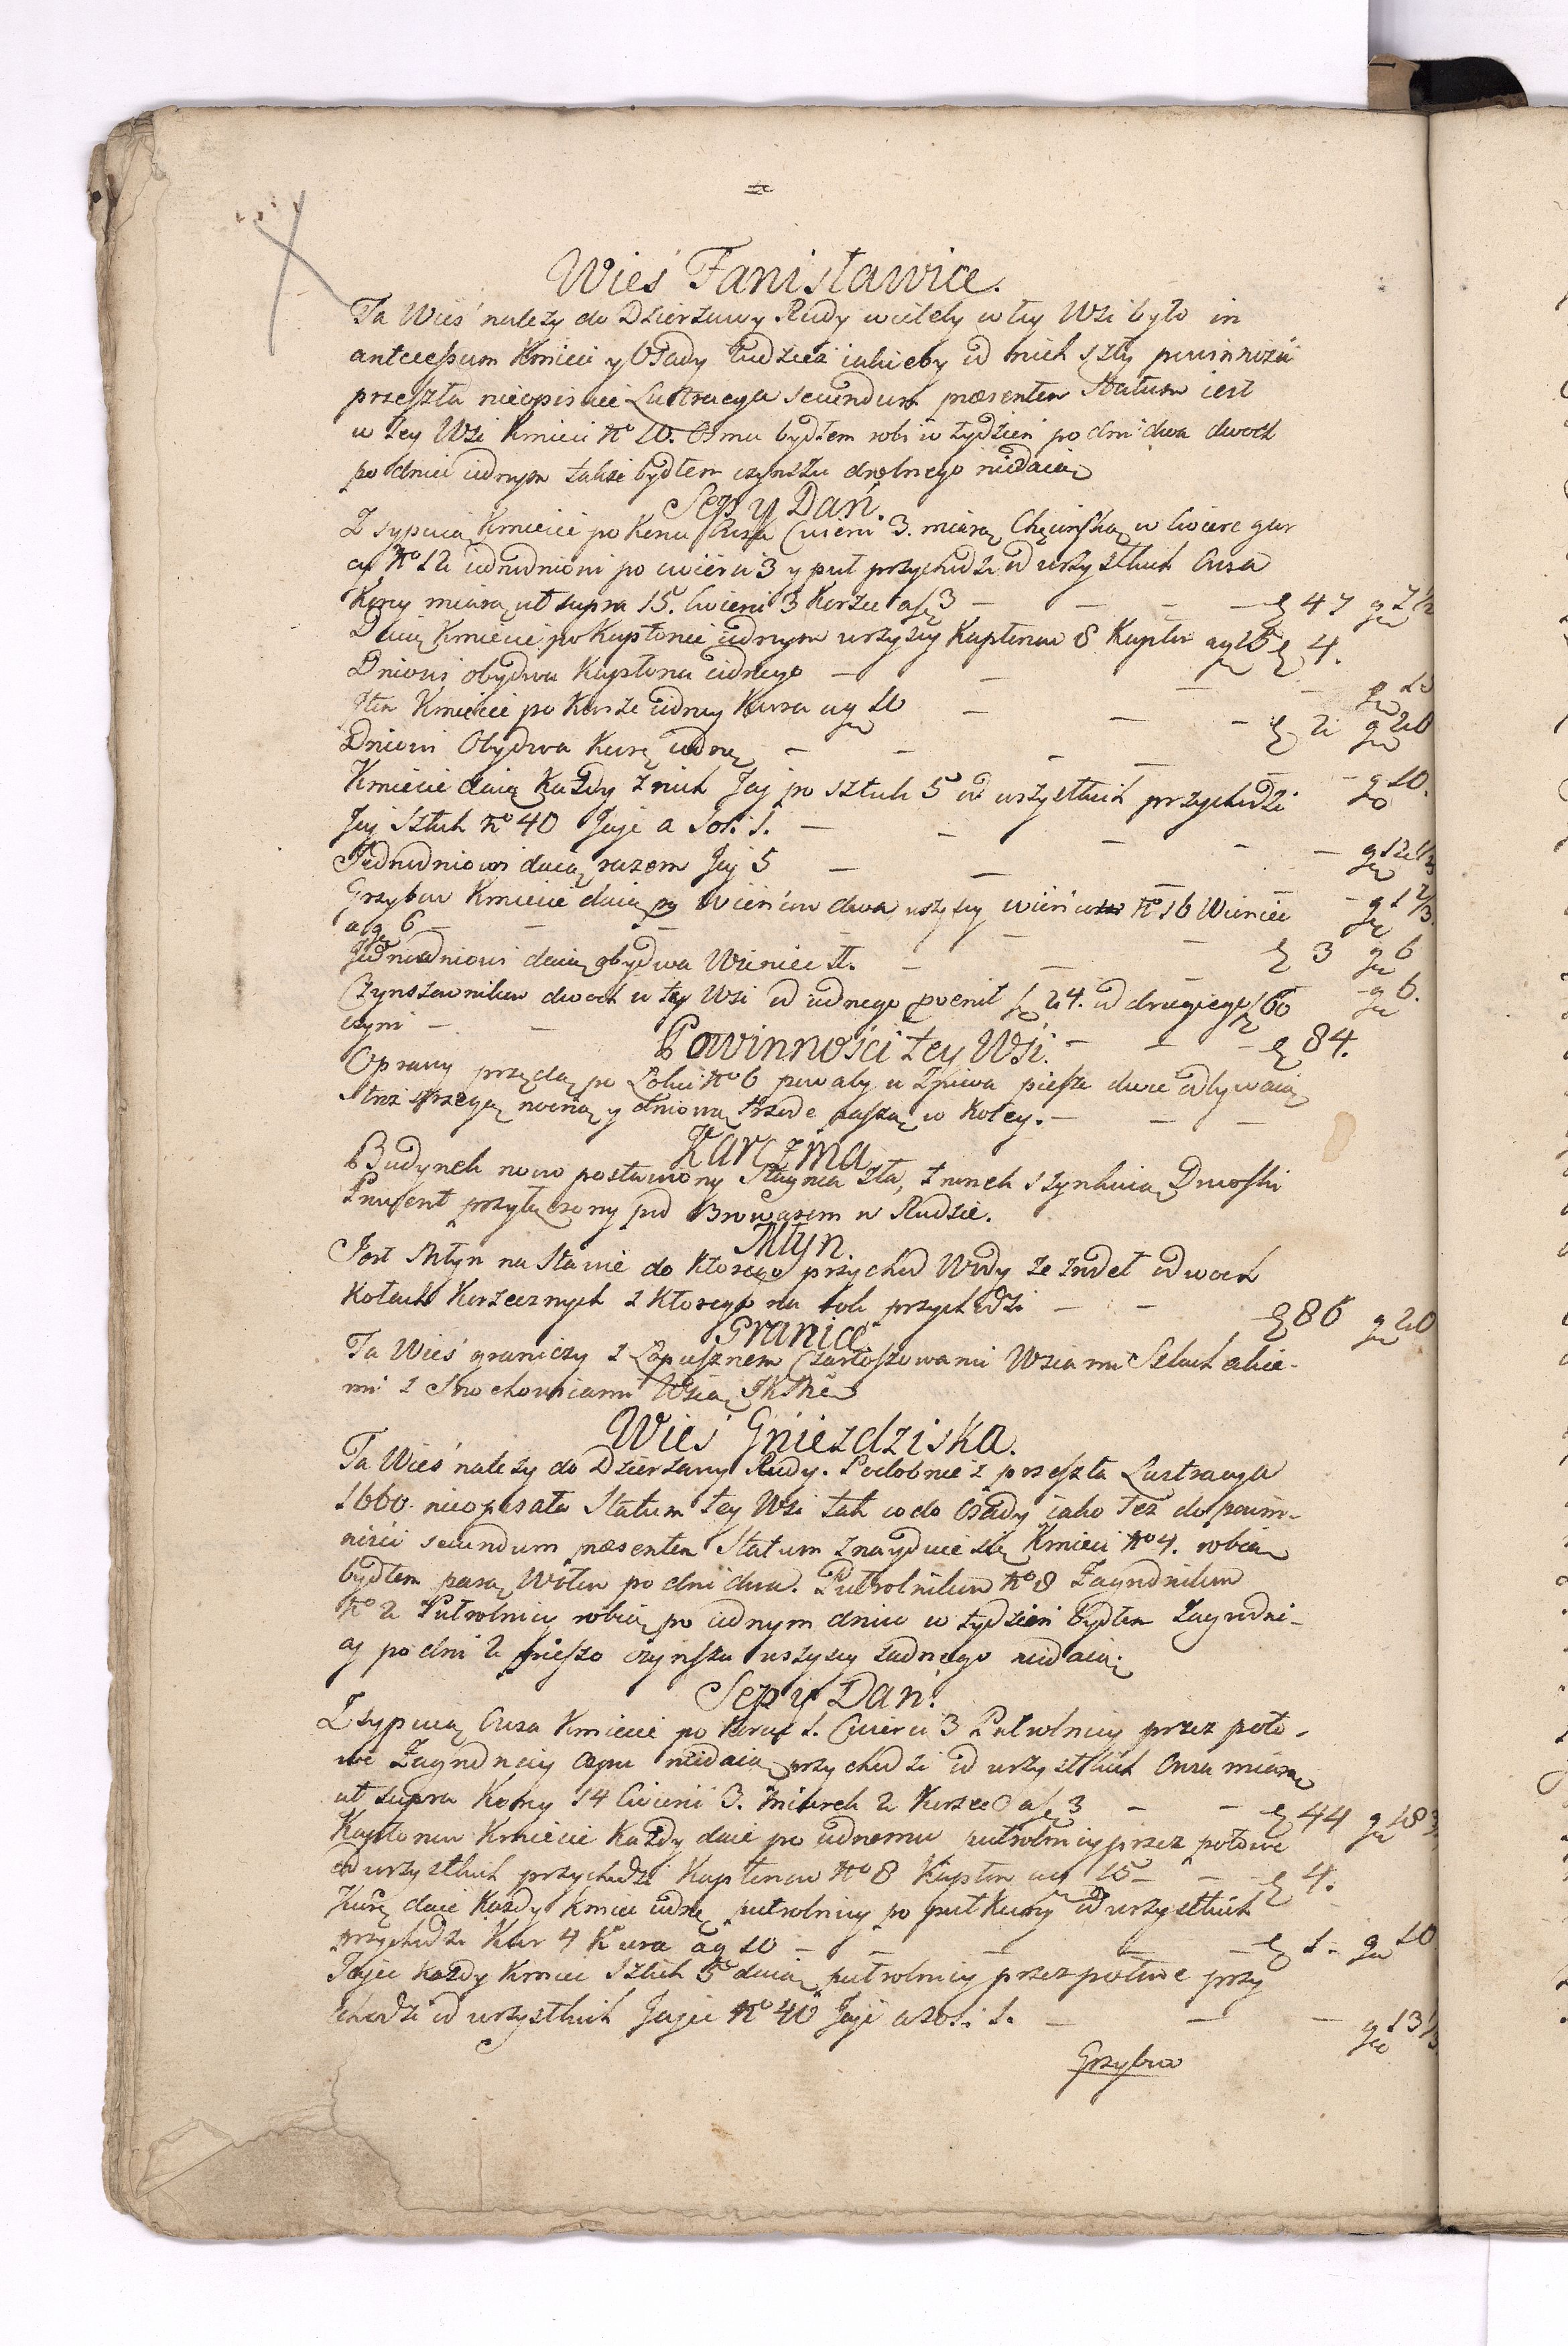 Wieś Fanisławice.
Ta Wieś należy do Dzierżawy Rudy wiele by w tey Wsi było in
antecessum Kmieci y Osady tudzież iakieby od nich szły powinności
przeszła nieopisuie Lustracya secundum præsentem Statum iest
w tey Wsi Kmieci No 10. Osmu bydłem robi w tydzień po dni dwa dwoch
po dniu iednym także bydłem czynszu drobnego niedaią
Sep y Dań.
Zsypuią Kmiecie po Korcu Owsa Cwierci 3. miarą Chęcińską w Cwierc gar
cy No 12 iednodniowi po cwierci 3 y puł przychodzi od wszystkich Owsa
Korcy miarą ut supra 15. Cwierci 3 Korzec a fl 3 - - - - fl 47 gr 7 1/2
Daią Kmiecie po Kapłonie iednym wszyscy Kapłonow 8 Kapłon a gr 15 fl 4.
Dniowi obydwa Kapłona iednego - - - - gr 15
Item Kmiecie po Kurze iedney Kura a gr 10 - - - fl 2 gr 20
Dniowi Obydwa Kurę iednę - - - - - gr 10.
Kmiecie daią Każdy z nich Jay po sztuk 5 od wszystkich przychodzi
Jay Sztuk No 40 Jaje a sol. 1. - - - - - gr 12 1/3
Jednodniowi daią razem Jay 5 - - - gr 1 2/3.
Grzybow Kmiecie daią po Wieńcow dwa wszyscy wieńcow No 16 Wieniec
a gr 6 - - - - - - fl 3 gr 6
Jednodniowi daią obydwa Wieniec 1. - - - gr 6.
Czynszownikow dwoch w tey Wsi od iednego przenit fl 24. od drugiego fl 60
czyni - - - - - fl 84.
Powinności tey Wsi.
Oprawy przędą po Łokci No 6 powaby w Żniwa piesze dwie odbywaią
Stroż strzegą nocną y dniową trzode paszą w Koley. - - -
Karczma
Budynek nowo postawiony Staynia zła, trunek szynkuią Dworski
Prowent przyłączony pod Browarem w Rudzie.
Młyn.
Jest Młyn na Stawie do ktorego przychod Wody ze zrodeł o dwoch
Kołach Korzecznych z ktorego na rok przychodzi - - fl 86 gr 20
Granice
Ta Wieś graniczy z Łopusznem Czartoszowami Wsiami Szlacheckie-
mi z Snochowicami Wsią JKMci
Wieś Gniezdziska.
Ta Wieś należy do Dzierżawy Rudy. Podobnież przeszła Lustracya
1660. nieopisała Statum tey Wsi tak co do Osady jako też do powin-
ności secundum præsentem Statum znayduie się Kmieci No 4. robią
bydłem parą Wołow po dni dwa. Pułrolnikow No 8 Zagrodnikow
No 2 Pułrolnicy robią po iednym dniu w tydzień bydłem Zagrodni-
cy po dni 2 pieszo czynszu wszyscy żadnego niedaią
Sep y Dań.
Zsypuią Owsa Kmiecie po Korcu 1. Cwierci 3 Pułrolnicy przez poło-
wę Zagrodnicy Osepu niedaią przychodzi od wszystkich Owsa miarą
ut supra Korcy 14 Cwierci 3. miarek 2 Korzec a fl 3 - - fl 44 gr 18 3/
Kapłonow Kmiecie Każdy daie po iednemu pułrolnicy przez połowe
od wszystkich przychodzi Kapłonow No 8 Kapłon a gr 15 - - fl 4.
Kurę daie Każdy kmiec iednę pułrolnicy po puł Kury od wszystkich
przychodzi Kur 4 Kura a gr 10 - - - - fl 1 - gr 10
Jajec każdy kmiec sztuk 5 daią pułrolnicy przez połowe przy
chodzi od wszystkich Jajec No 40 Jaje a sol. 1. - - - gr 13 1/3.
Grzybow